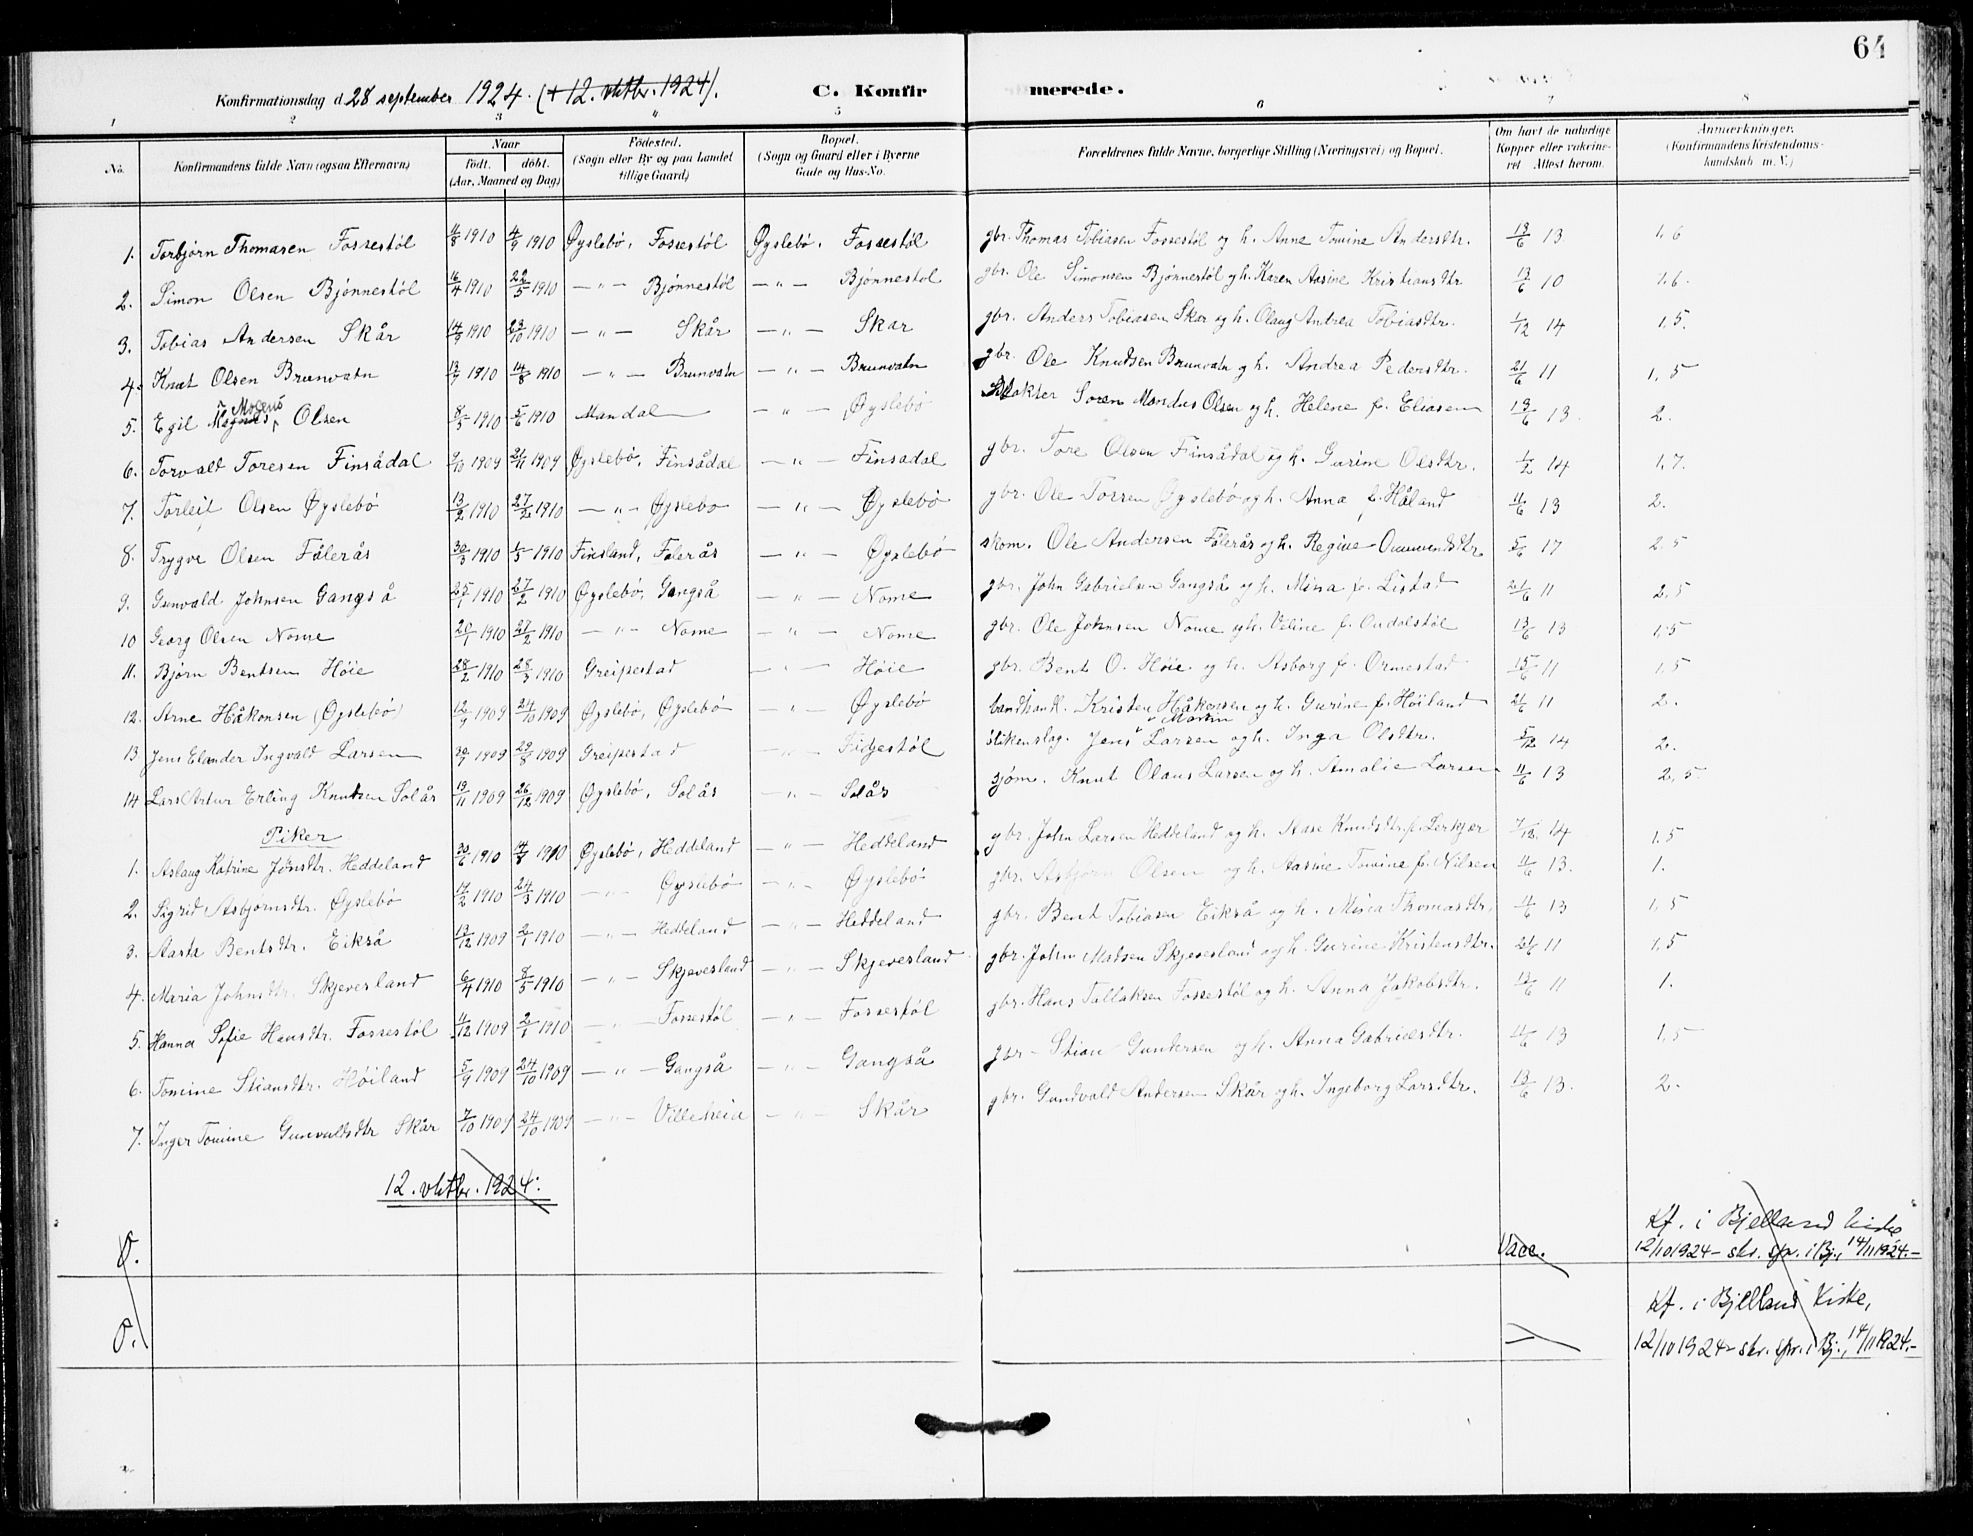 64
Konfirmationsdag d. 28 september 1924. (+ 12. oktbr. 1924). C. Konfirmerede.
1 2 3 4 5 6 7 8
No. Konfirmandens fulde Navn (ogsaa Efternavn) Naar födt. döbt. (Aar, Maaned og Dag) Födested. (Sogn eller By og paa Landet tillige Gaard) Bopæl. (Sogn og Gaard eller i Byerne Gade og Hus-No. Forældrenes fulde Navne, borgerlige Stilling (Næringsvei) og Bopæl. Om havt de naturlige Kopper eller vakcineret Attest herom. Anmærkninger. (Konfirmandens Kristendomskundskab m. V.)
1. Torbjørn Thomasen Fossestøl 11/8 1910 4/9 1910 Øyslebø, Fossestøl Øyslebø, Fossestøl gbr. Thomas Tobiasen Fossestøl og h. Anne Tomine Andersdtr. 13/6 13 1,6
2. Simon Olsen Bjønnestøl 16/4 1910 22/5 1910 — " — Bjønnestøl — " — Bjønnestøl gbr. Ole Simonsen Bjønnestøl og h. Karen Aasine Kristiansdtr 13/6 10 1,6.
3. Tobias Andersen Skår 14/9 1910 23/10 1910 — " — Skår — " — Skar gbr. Anders Tobiasen Skar og h. Olaug Andrea Tobiasdtr. 1/12 14 1,5.
4. Knut Olsen Brunvatn 13/7 1910 14/8 1910 — " — Brunvatn — " — Brunvatn gbr. Ole Knudsen Brunvatn og h. Andrea Pedersdtr. 21/6 11 1,5
5. Egil Magnus Mogens Olsen 8/5 1910 5/6 1910 Mandal — " — Øyslebø Slakter Søren Mandus Olsen og h. Helene f. Eliasen 13/6 13. 2.
6. Torvald Toresen Finsådal 9/10 1909 21/11 1909 Øyslebø, Finsådal — " — Finsadal gbr. Tore Olsen Finsådal og h. Gurine Olsdtr. 1/2 14 1,7.
7. Torleif Olsen Øyslebø 13/2 1910 27/2 1910 — " — Øyslebø — " — Øyslebø gbr. Ole Torsen Øyslebø og h. Anna f. Håland 11/6 13 2.
8. Trygve Olsen Fålerås 30/3 1910 1/5 1910 Finsland, Falerås — " — Øyslebø skom. Ole Andersen Fålerås og h. Regine Ommundsdtr. 5/6 17 2,5
9. Gunvald Johnsen Gangså 25/1 1910 27/2 1910 Øyslebø, Gangså — " — Nome gbr. John Gabrielsen Gangså og h. Mina f. Listad 21/6 11 2,5
10 Georg Olsen Nome 20/1 1910 27/2 1910 — " — Nome — " — Nome gbr. Ole Johnsen Nome og h. Veline f. Ondalstøl 13/6 13 1,5
11. Bjørn Bentsen Høie 28/2 1910 28/3 1910 Greipestad — " — Høie gbr. Bent O. Høie og h. Asborg f. Ormestad 15/6 11 1,5
12. Arne Håkonsen (Øyslebø) 12/9 1909 24/10 1909 Øyslebø, Øyslebø — " — Øyslebø landhank. Kristen Håkonsen og h. Gurine f. Høiland 21/6 11 2.
13 Jens Elander Ingvald Larsen 30/7 1909 29/8 1909 Greipestad — " — Fidjestøl stikenslag. Jens Martin Larsen og h. Inga Olsdtr. 5/12 14 2.
14 Lars Artur Erling Knutsen Solås 19/11 1909 26/12 1909 Øyslebø, Solås — " — Solås sjøm. Knut Olaus Larsen og h. Amalie Larsen 11/6 13 2,5.
Piker
1. Aslaug Katrine Jonsdtr. Heddeland 30/6 1910 14/8 1910 Øyslebø, Heddeland — " — Heddeland gbr. John Larsen Heddeland og h. Aase Knudsdtr. f. Lerkjær 7/12 14 1,5
2. Sigrid Asbjørnsdtr. Øyslebø 17/2 1910 24/3 1910 — " — Øyslebø — " — Øyslebø gbr. Asbjørn Olsen og h. Aasine Tomine f. Nilsen 11/6 13. 1.
3. Aasta Bentsdtr. Eikså 13/12 1909 2/1 1910 — " — Heddeland — " — Heddeland gbr. Bent Tobiasen Eikså og h. Mina Thomasdtr. 11/6 13 1,5
4. Maria Johnsdtr. Skjeversland 6/4 1910 8/5 1910 — " — Skjevesland — " — Skjeversland gbr. John Madsen Skjevesland og h. Gurine Kristensdtr. 21/6 11 1,5
5. Hanna Sofie Hansdtr. Fossestøl 11/12 1909 2/1 1910 — " — Fossestøl — " — Fossestøl gbr. Hans Tallaksen Fossestøl og h. Anna Jakobsdtr. 13/6 11 1.
6. Tomine Stiansdtr. Høiland 5/9 1909 24/10 1909 — " — Gangså — " — Gangså gbr – Stian Gundersen og h. Anna Gabrielsdtr. 11/6 13 1,5
7. Inger Tomine Gunvaldsdtr Skår 7/10 1909 24/10 1909 — " — Villeheia — " — Skår gbr. Gundvald Andersen Skår og h. Ingeborg Larsdtr. 13/6 13. 2.
12. oktbr. 1924.
Kf. i Bjelland kirke
0. Vacc. 12/10 1924 – skr. spr. i Bj., 14/11 1924. –
Kf. i Bjelland Kirke,
0. — 12/10 1924 – skr. spr. i Bj., 14/11 1924. –